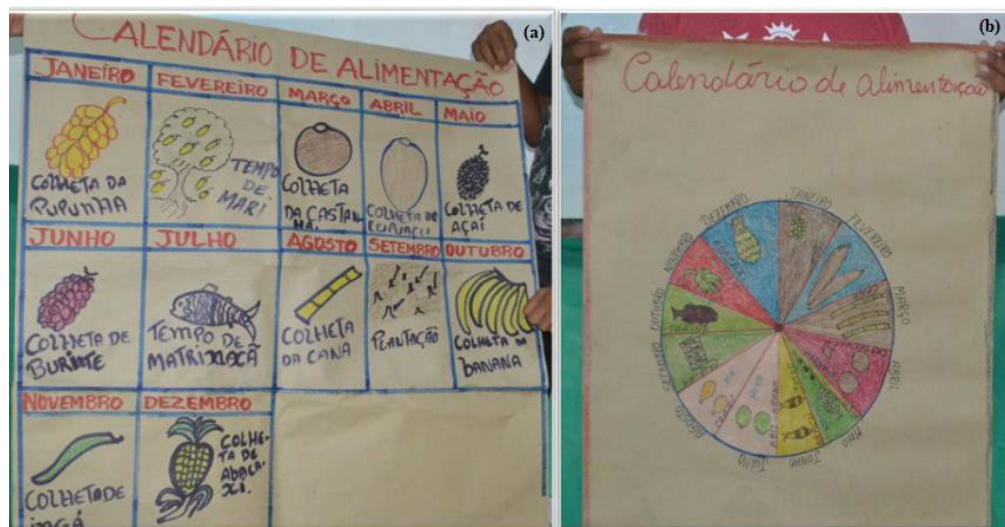 (a)
CALENDÁRIO DE ALIMENTAÇÃO
JANEIRO
COLHETA DA
PUPUNHA
FEVEREIRO
TEMPO
DE
MARI
MARÇO
COLHETA
DA CASTAN
HA.
ABRIL
COLHETA DE
MAIO
COLHETA DE
AÇAÍ
JUNHO
COLHETA DE
JULHO
TEMPO DE
MATRINXACÃ
AGOSTO
COLHETA
DA CANA
SETEMBRO
PLANTAÇÃO
OUTUBRO
COLHETA DA
BANANA
NOVEMBRO
COLHETA DE
INGÁ
DEZEMBRO
COLHE-
TA DE
ABACA-
XI.
(b)
Calendário de alimentação
JANEIRO
FEVEREIRO
MARÇO
ABRIL
MAIO
JUNHO
JULHO
AGOSTO
SETEMBRO
OUTUBRO
NOVEMBRO
DEZEMBRO